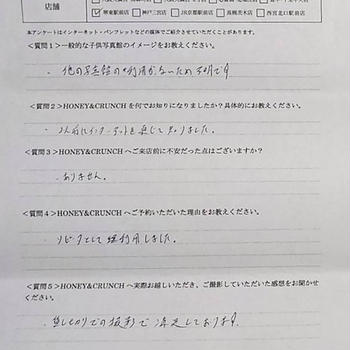 店舗
堺東駅前店
神戸三宮店
JR京都駅前店
高槻茨木店
西宮北口駅前店
本アンケートはインターネット・パンフレットなどの媒体でご紹介させていただくことがあります。
<質問1>一般的な子供写真館のイメージをお教えください。
・他の写真館の利用がないため不明です
<質問2>HONEY&CRUNCHを何でお知りになりましたか?具体的にお教えください。
・以前にインターネットを通じて知りました。
<質問3>HONEY&CRUNCHへご来店前に不安だった点はございますか?
・ありません。
<質問4>HONEY&CRUNCHへご予約いただいた理由をお教えください。
・リピーターとして利用しました。
<質問5>HONEY&CRUNCHへ実際お越しいただき、ご撮影していただいた感想をお聞かせ
ください。
・貸し切りでの撮影で満足しております。